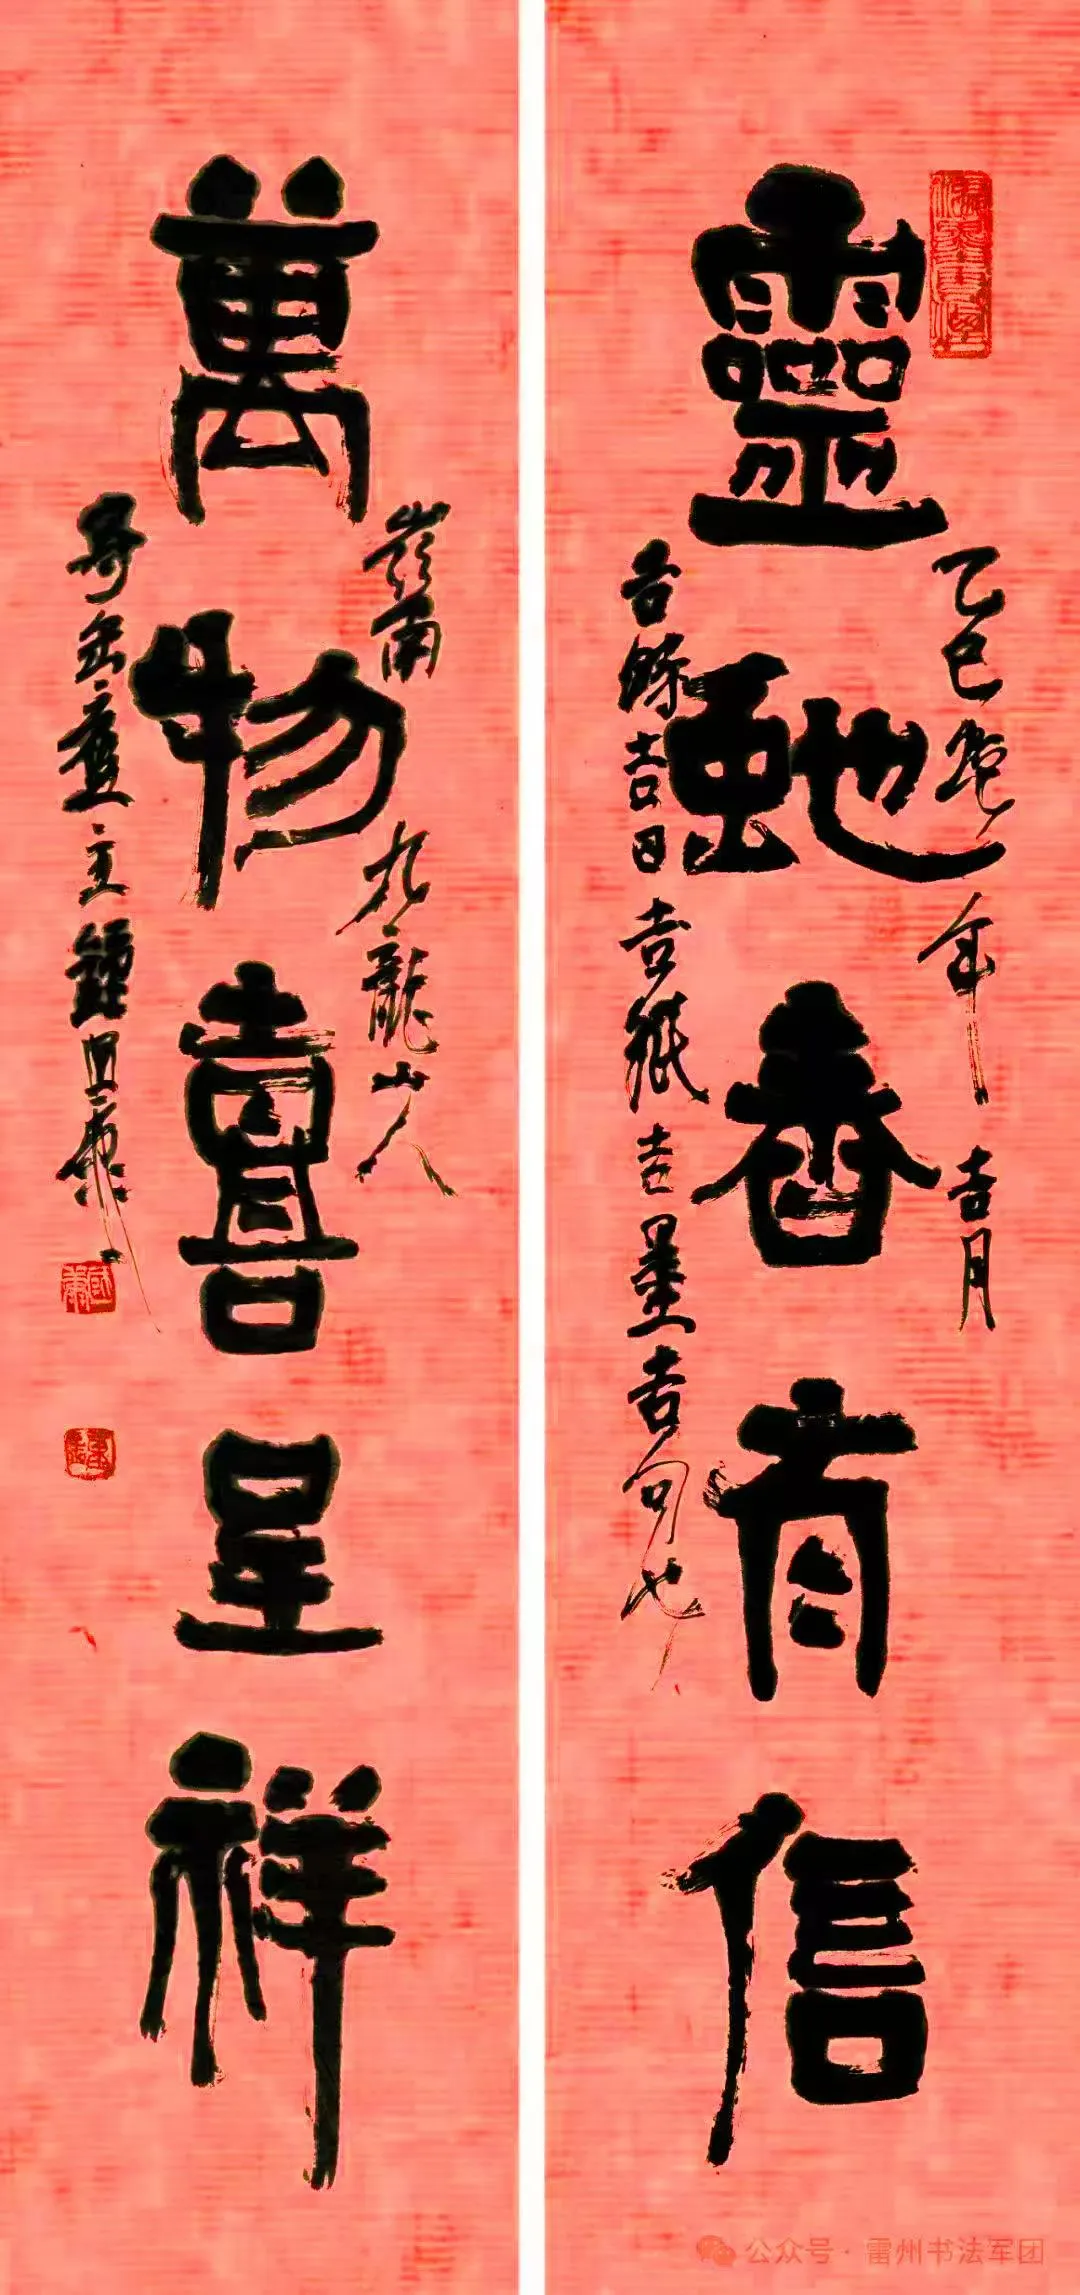 靈虵春有信
乙巳蛇年吉月
吉日吉紙吉墨吉句也
萬物喜呈祥
嶺南九龍山人
主鍾國康
公众号·雷州书法军团